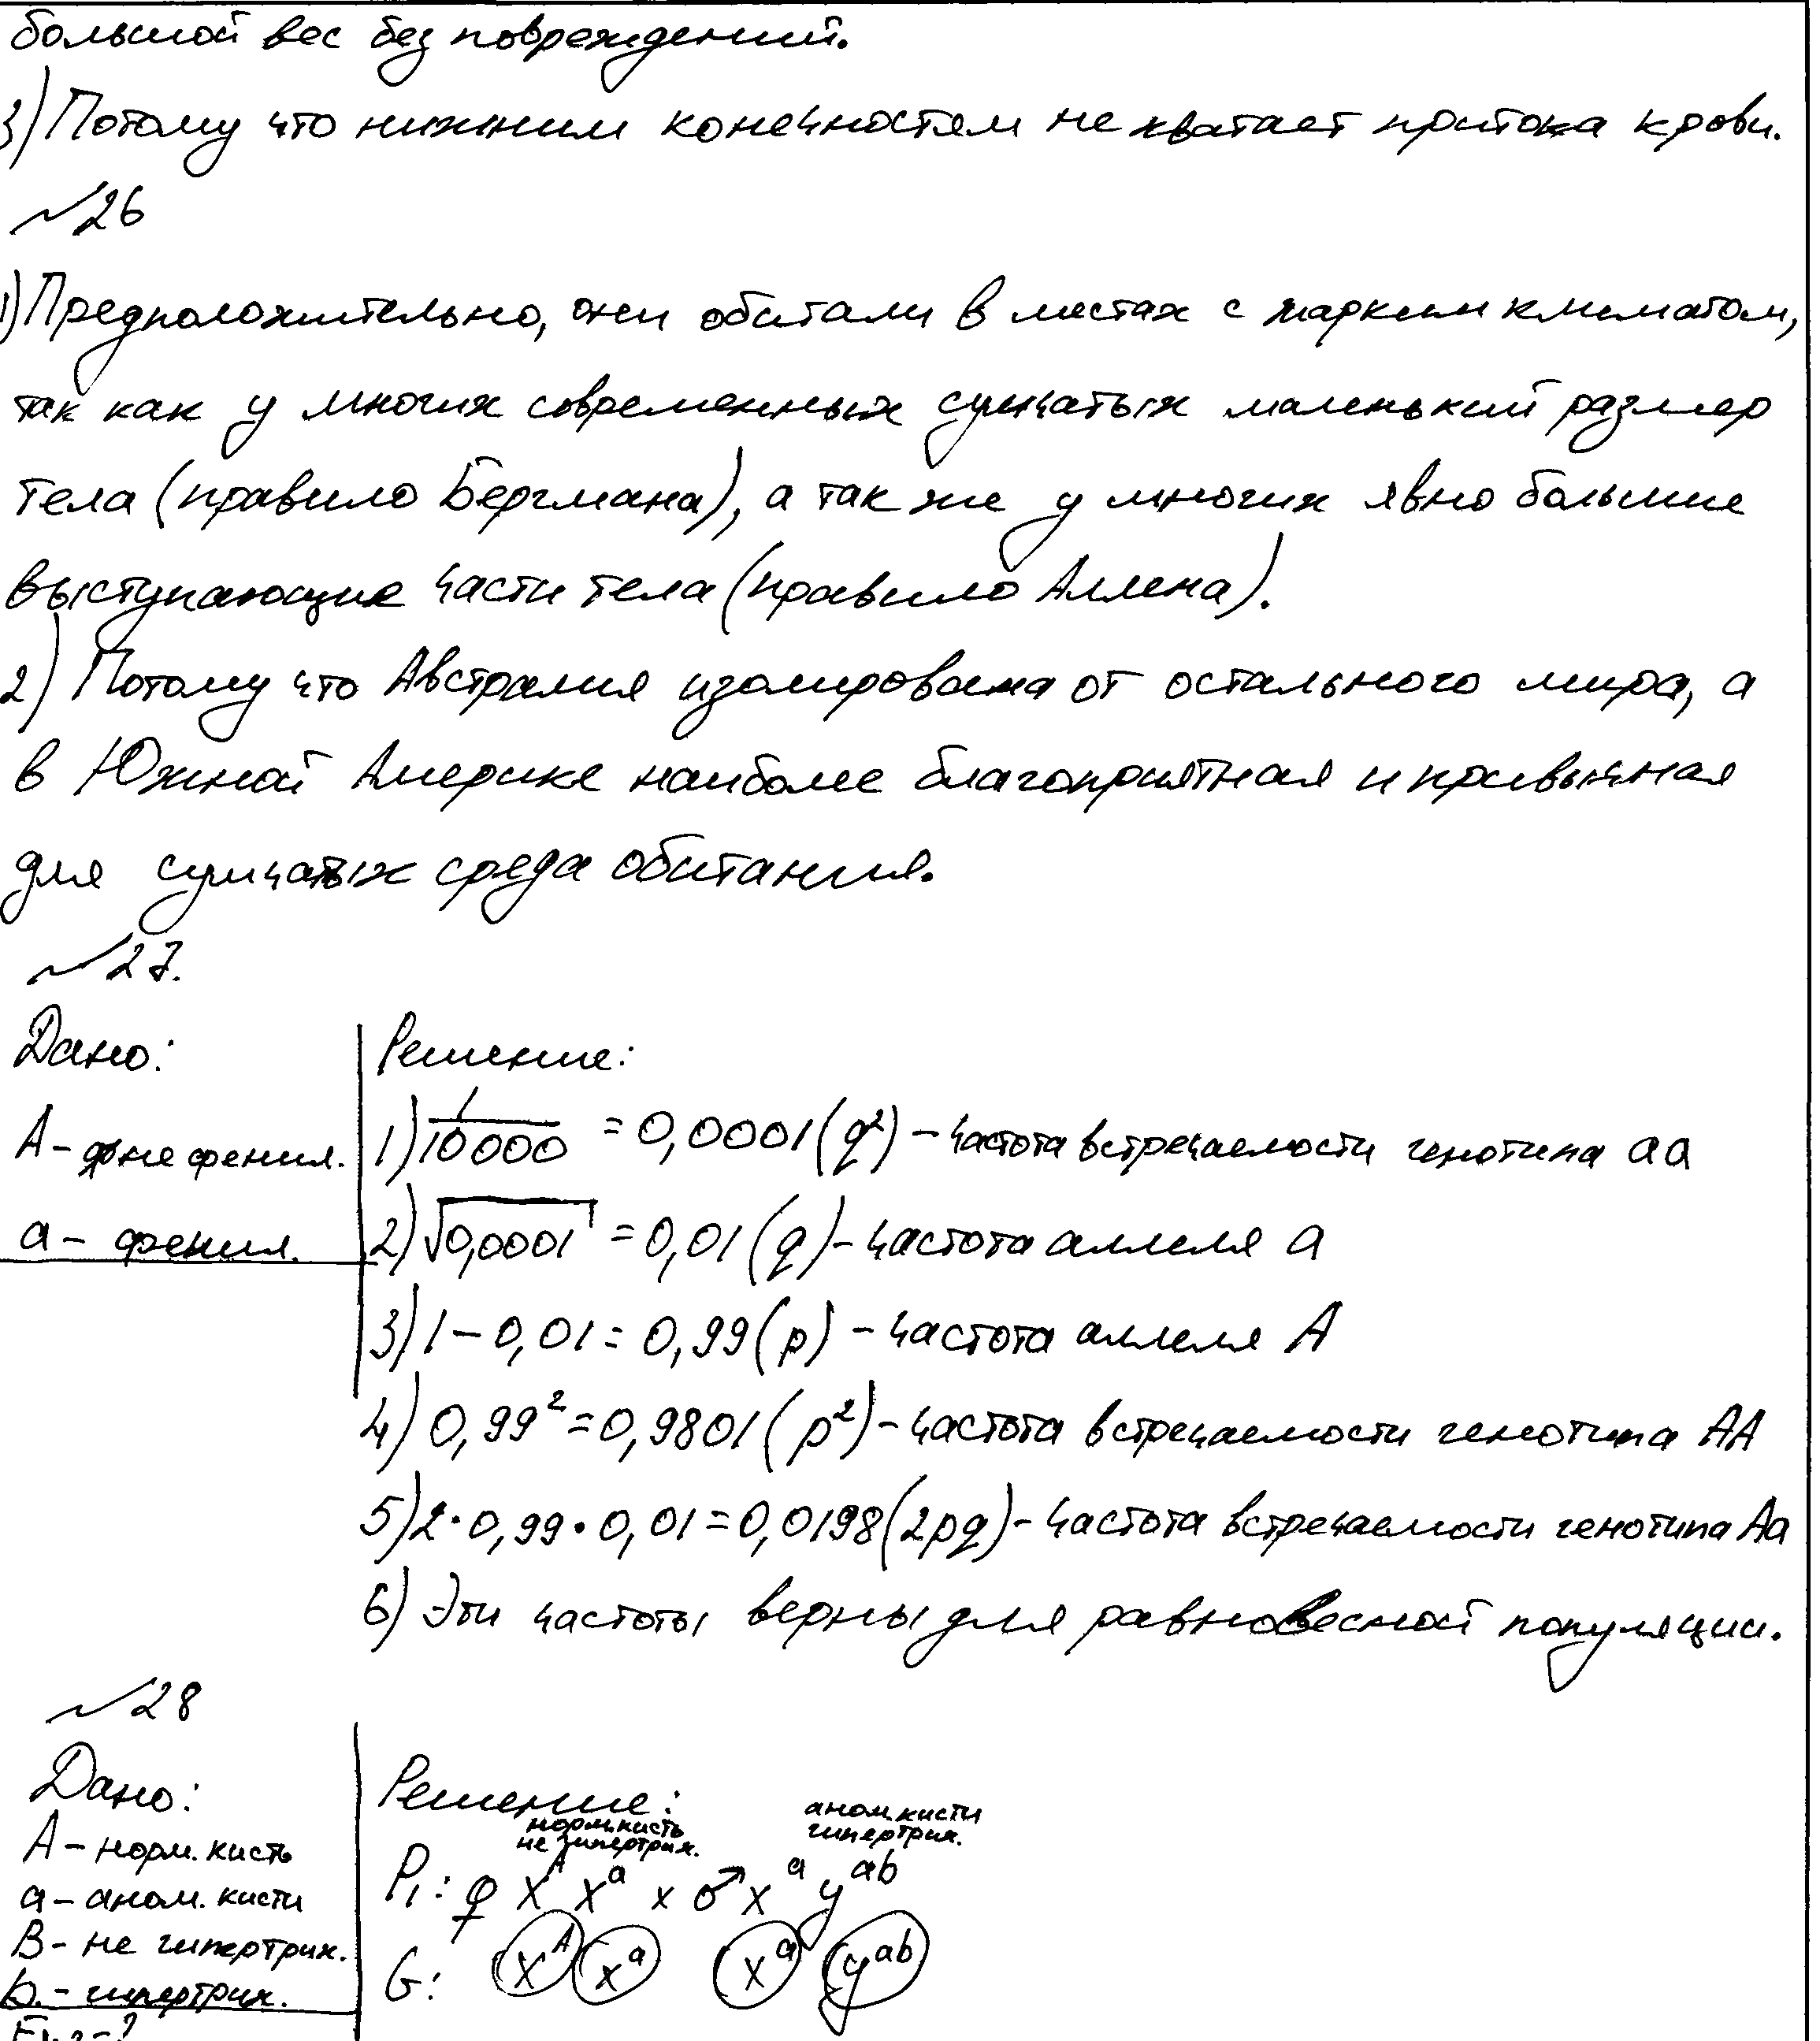 большой вес без повреждений.
3) Потому что нижним конечностям не хватает притока крови.
№26
1) Предположительно, они обитали в местах с жарким климатом,
так как у многих современных сумчатых маленький размер
тела (правило Бергмана), а так же у многих явно большие
выступающие части тела (правило Аллена).
2) Потому что Австралия изолирована от остального мира, а
в Южной Америке наиболее благоприятная и привычная
для сумчатых среда обитания.
№27.
Дано:
А - не фенил.
а - фенил.
Решение:
1) 1/10000 = 0,0001 (q²) - частота встречаемости генотипа аа
2) √0,0001 = 0,01 (q) - частота аллеля а
3) 1 - 0,01 = 0,99 (p) - частота аллеля А
4) 0,99² = 0,9801 (p²) - частота встречаемости генотипа АА
5) 2·0,99·0,01 = 0,0198 (2pq) - частота встречаемости генотипа Аа
6) Эти частоты верны для равновесной популяции.
№28
Дано:
А - норм. кисть
а - аном. кисти
В - не гипертрих.
b - гипертрих.
Решение:
норм. кисть аном. кисти
не гипертрих. гипертрих.
P₁: ♀ Xᴬ Xᵃ x ♂ Xᵃ Yᵃᵇ
G: Xᴬ Xᵃ Xᵃ Yᵃᵇ